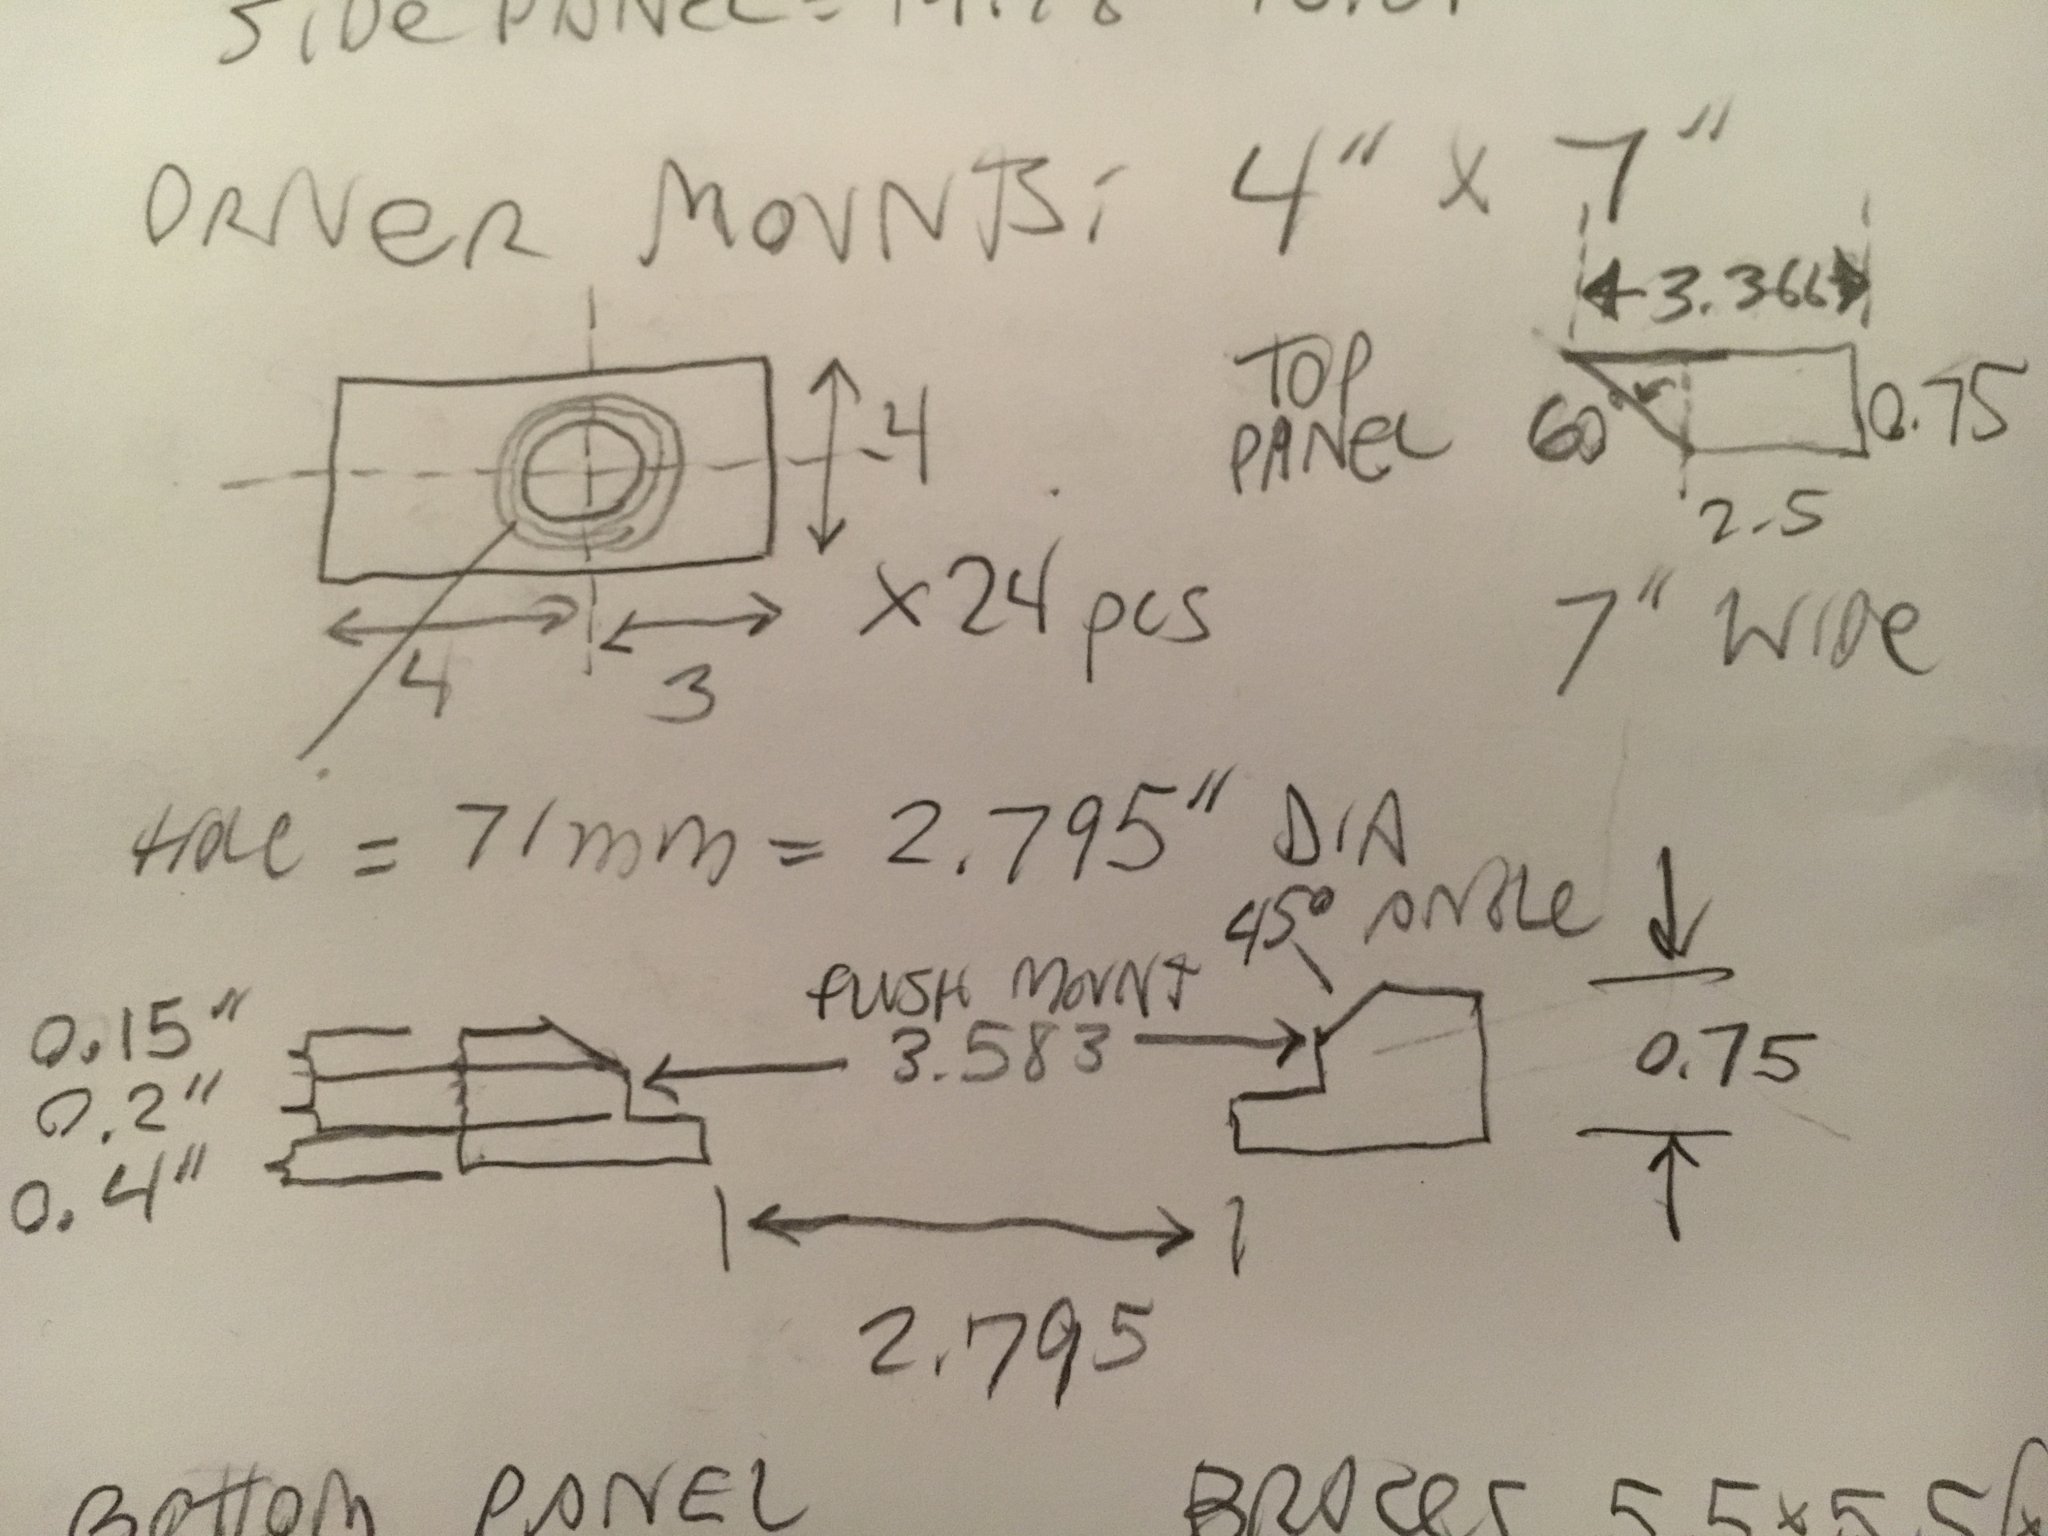 SIDE PANEL =
DRIVER MOUNTS: 4" x 7"
3.366
TOP
PANEL
60°
0.75
2.5
7" WIDE
4
x 24 pcs
4
3
HOLE = 71mm = 2.795" DIA
45° ANGLE
FLUSH MOUNT
3.583
0.15"
0.2"
0.4"
0.75
2.795
BOTTOM PANEL
BRACES 5.5 x 5.5